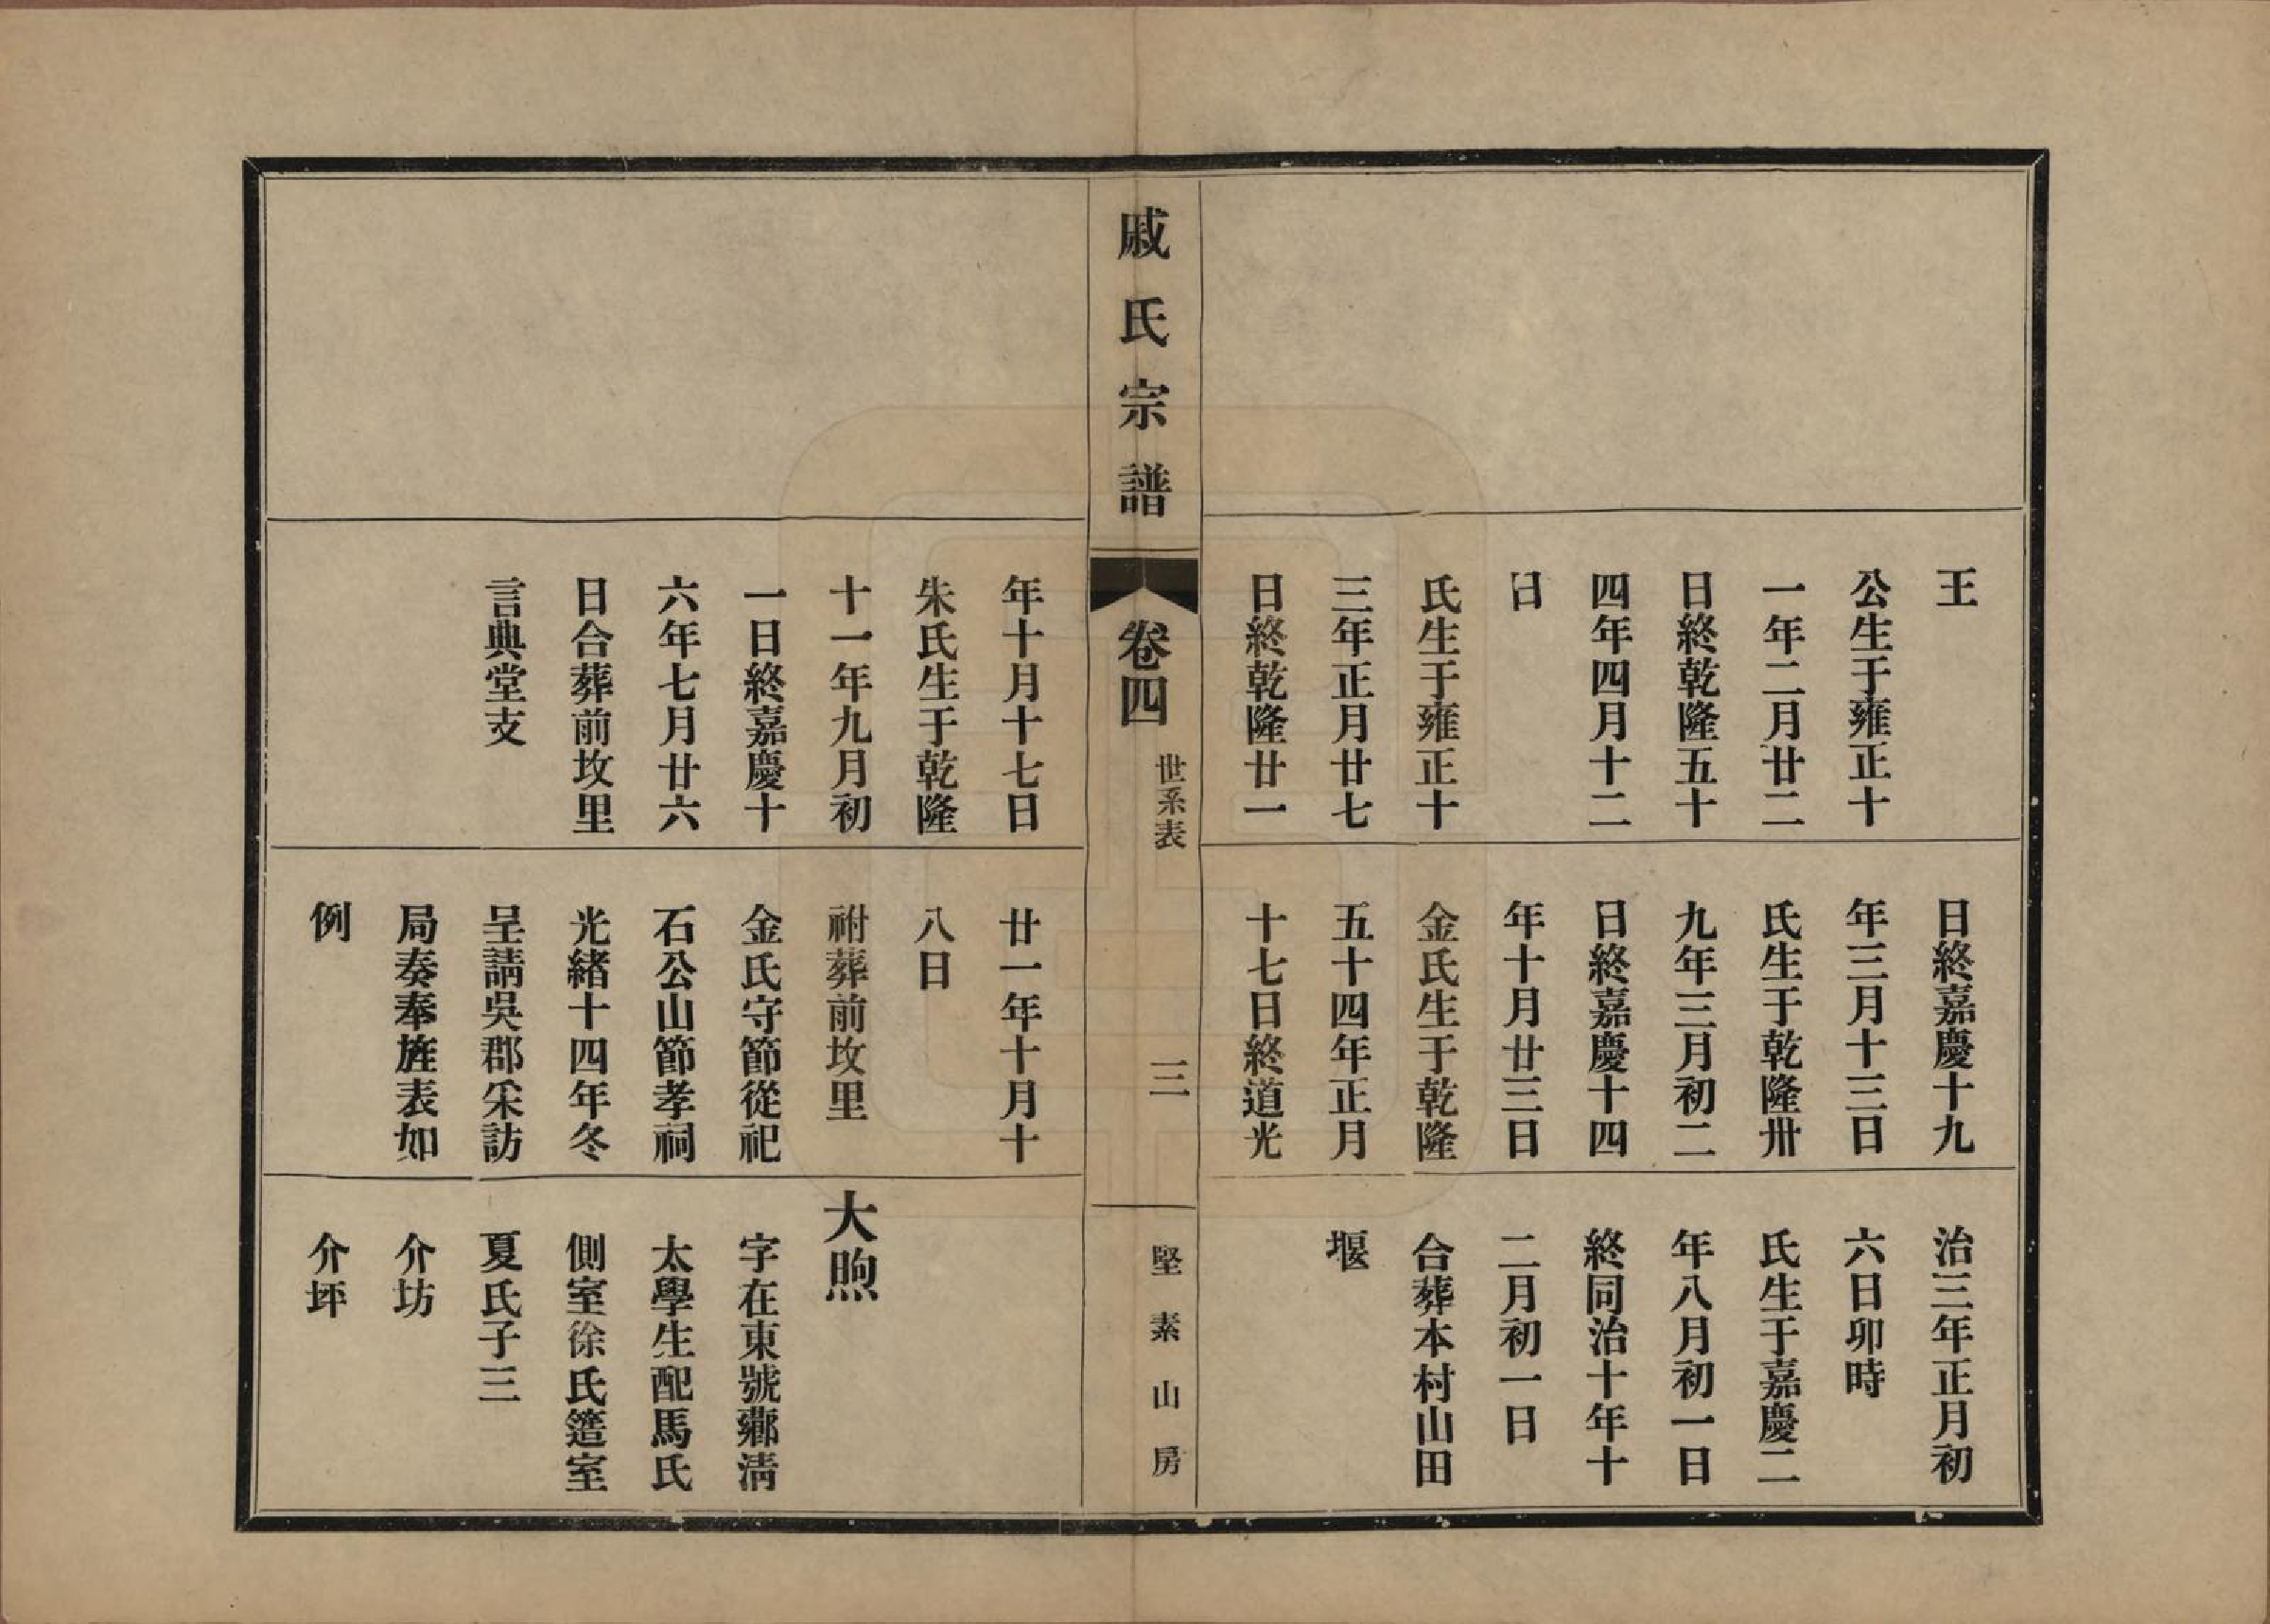 王
公生于雍正十
一年二月廿二
日終乾隆五十
四年四月十二
日
氏生于雍正十
三年正月廿七
日終乾隆廿一
日終嘉慶十九
年三月十三日
氏生于乾隆卅
九年三月初二
日終嘉慶十四
年十月廿三日
金氏生于乾隆
五十四年正月
十七日終道光
治三年正月初
六日卯時
氏生于嘉慶二
年八月初一日
終同治十年十
二月初一日
合葬本村山田
堰
戚氏宗譜
卷四
世系表
三
堅素山房
年十月十七日
朱氏生于乾隆
十一年九月初
一日終嘉慶十
六年七月廿六
日合葬前坟里
言典堂支
廿一年十月十
八日
祔葬前坟里
金氏守節從祀
石公山節孝祠
光緒十四年冬
呈請吳郡采訪
局奏奉旌表如
例
大煦
字在東號薌淸
太學生配馬氏
側室徐氏簉室
夏氏子三
介坊
介坪